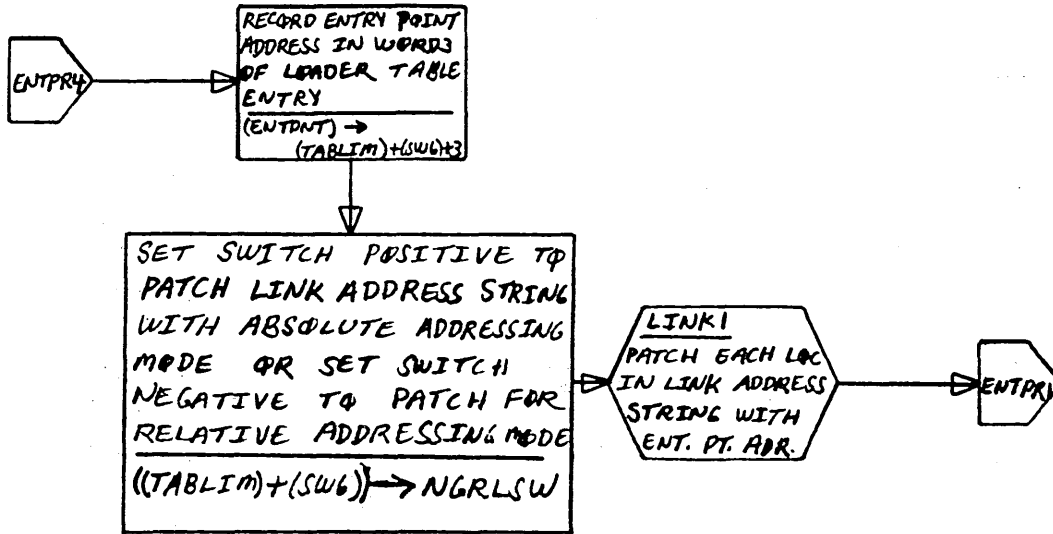 ENTPR4
RECORD ENTRY POINT
ADDRESS IN WORD3
OF LOADER TABLE
ENTRY
(ENTDNT) →
(TABLIM)+(SW6)+3
SET SWITCH POSITIVE TO
PATCH LINK ADDRESS STRING
WITH ABSOLUTE ADDRESSING
MODE OR SET SWITCH
NEGATIVE TO PATCH FOR
RELATIVE ADDRESSING MODE
((TABLIM)+(SW6)) → NGRLSW
LINK1
PATCH EACH LOC
IN LINK ADDRESS
STRING WITH
ENT. PT. ADR.